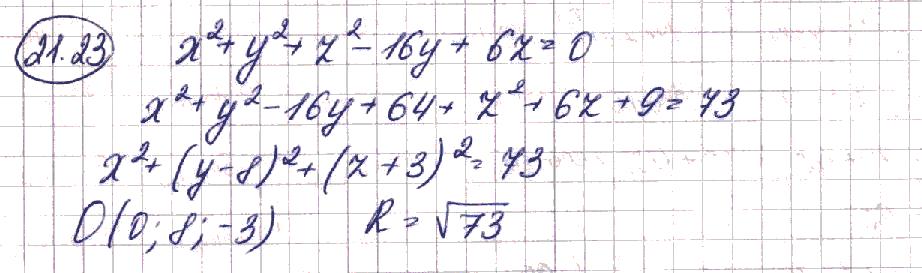 21.23 x²+y²+z²-16y+6z=0
x²+y²-16y+64+z²+6z+9=73
x²+(y-8)²+(z+3)²=73
O(0;8;-3) R=√73